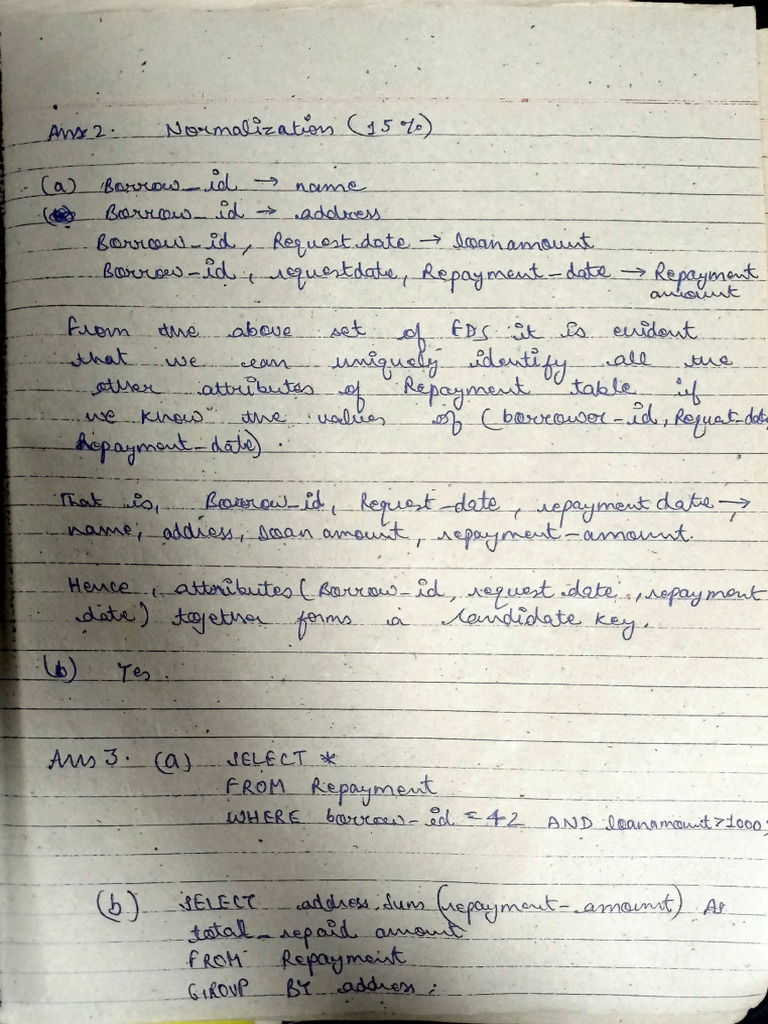 Ans 2. Normalization (15%)
(a) Borrow_id → name
Borrow_id → address
Borrow_id, Request date → loanamount
Borrow_id, requestdate, Repayment-date → Repayment
amount
From the above set of FDS it is evident
that we can uniquely identify all the
other attributes of Repayment table if
we know the values of (borrower-id, Request-date
Repayment-date).
That is, Borrow_id, Request-date, repayment date →
name, address, loan amount, repayment-amount.
Hence, attributes (Borrow-id, request date, repayment
date) together forms a candidate key.
(b) Yes
Ans 3. (a) SELECT *
FROM Repayment
WHERE borrow-id = 42 AND loanamount>1000;
(b) SELECT address, Sum (repayment-amount) As
total_repaid amount
FROM Repayment
GROUP BY address;